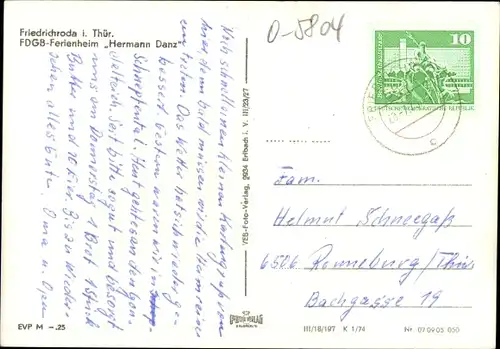 Friedrichroda i. Thür.
FDGB-Ferienheim „Hermann Danz"
O-5804
10
DEUTSCHE DEMOKRATISCHE REPUBLIK
Noch schnell einen kleinen Kartengruß von
hier, denn bald müssen wir die Heimreise
antreten. Das Wetter hat sich wieder ge-
bessert. Gestern waren wir in
Schnepfental. Heut geht es an den Gen.
Seit bitte so gut und besorgt
uns am Donnerstag 1 Brot, 1 Stück
Butter und 10 Eier. Bis zum Wieder-
sehen alles Gute. Oma u. Opa
VEB-Foto-Verlag, 9934 Erlbach i. V. III/23/27
Fam.
Helmut Schneegaß
6506 Ronneburg/Thür
Bachgasse 19
EVP M –.25
III/18/197 K 1/74 Nr 07 09 05 050